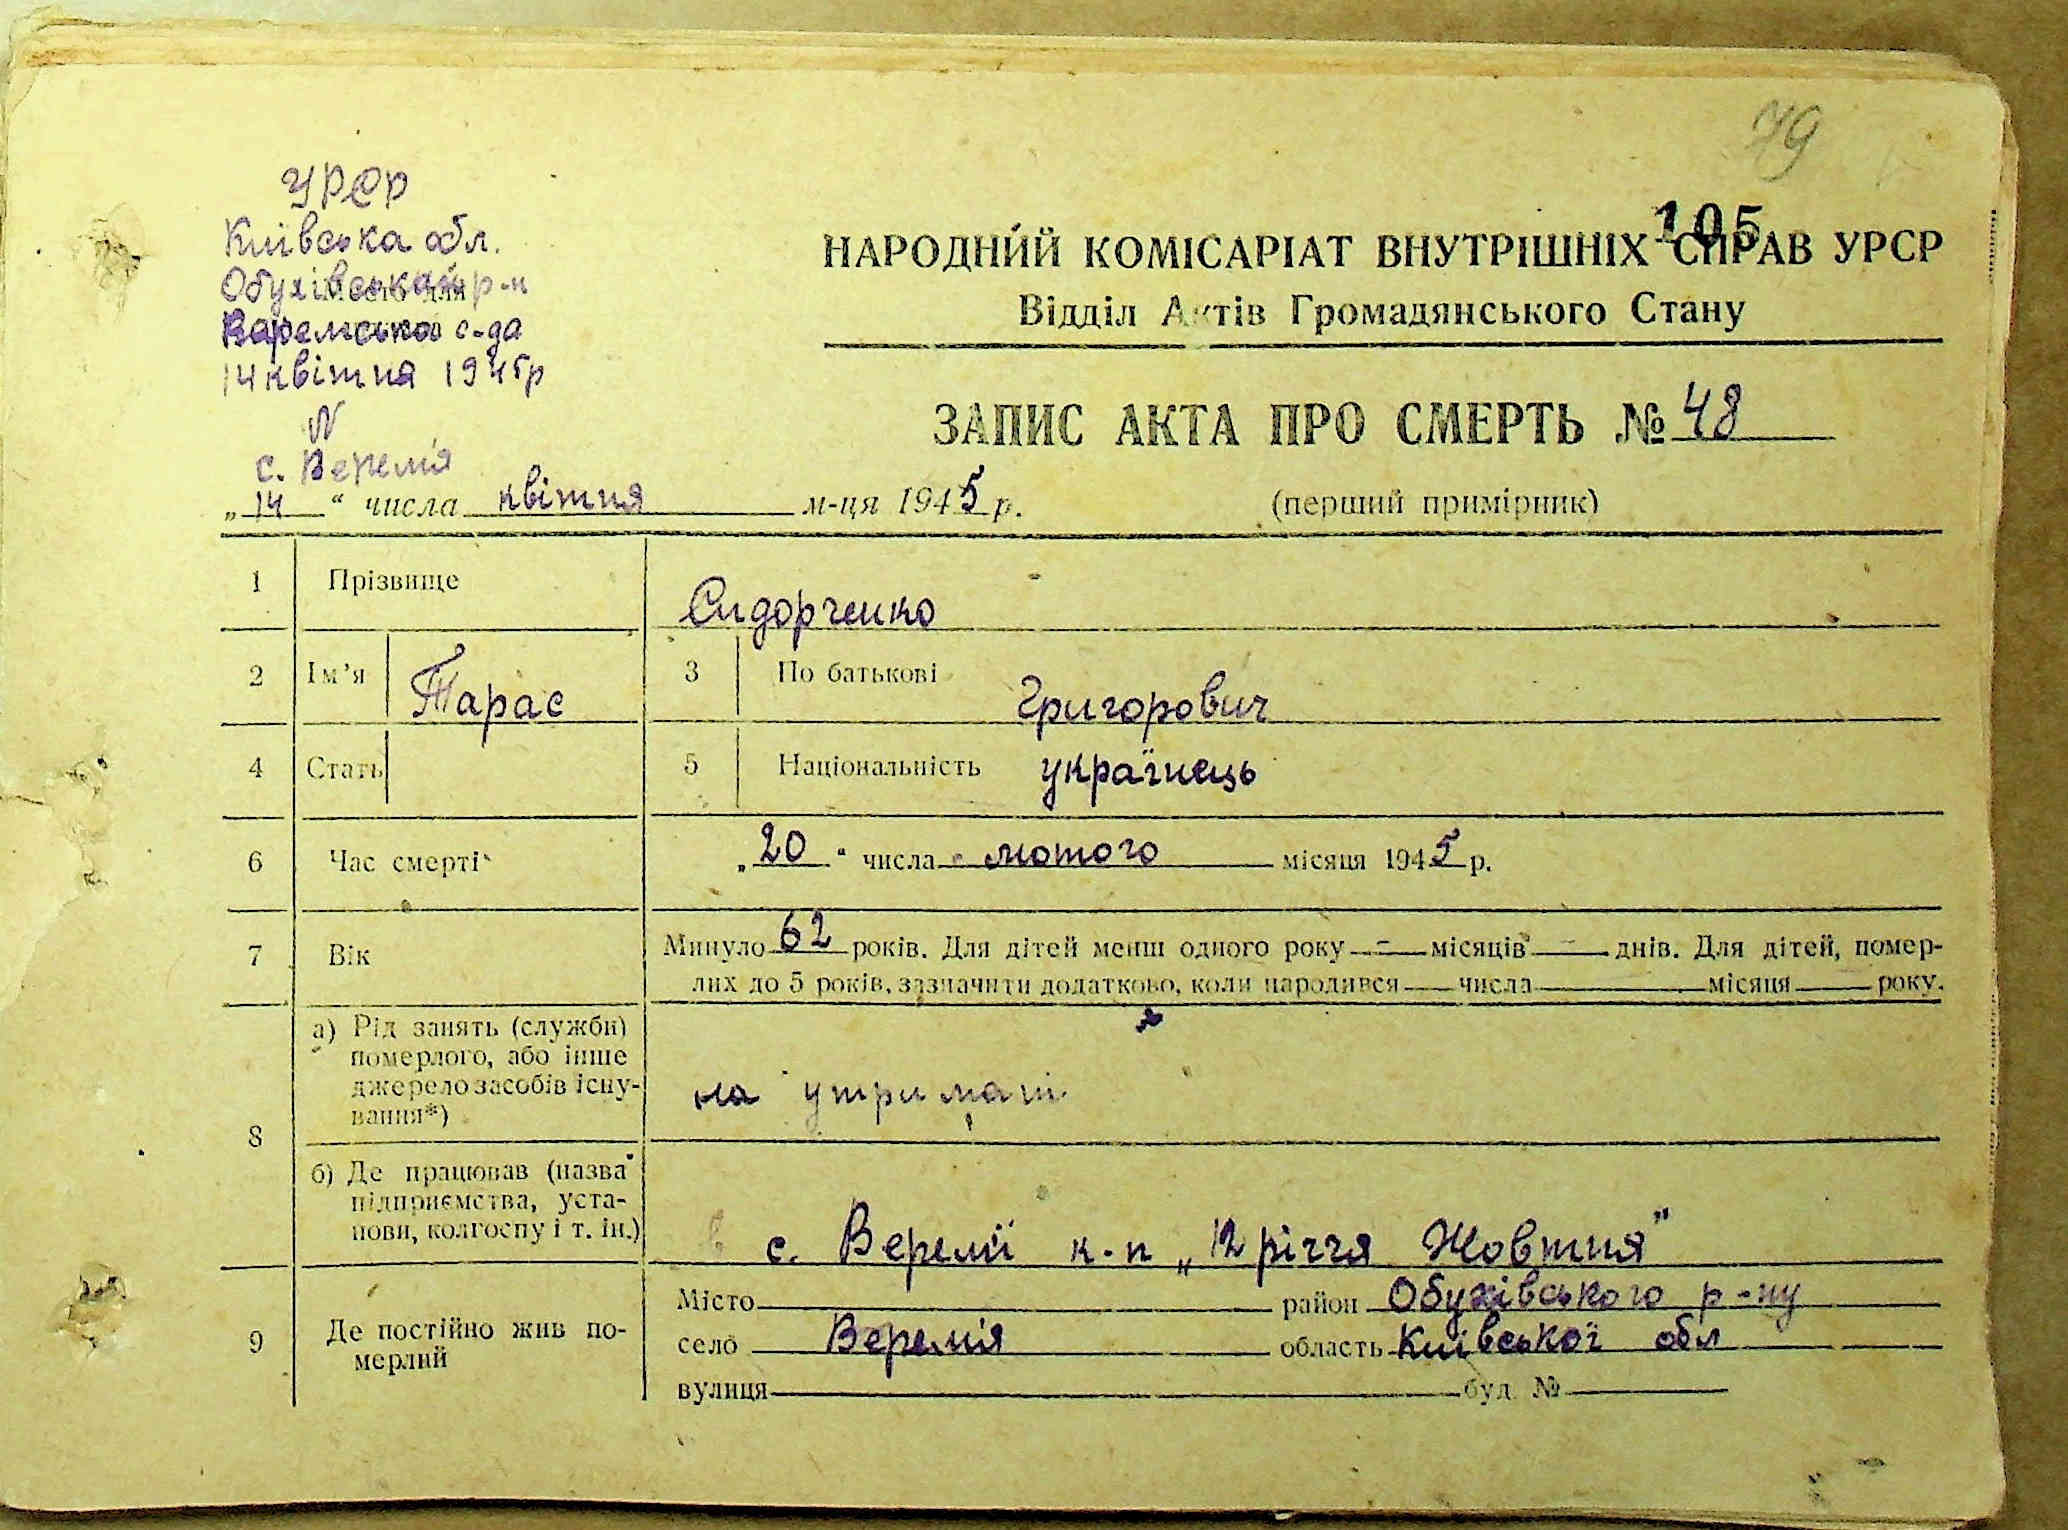 79
105
УРСР
Київська обл.
Обухівський р-н
Веремська с-да
14 квітня 1945р
N
с. Веремія
НАРОДНИЙ КОМІСАРІАТ ВНУТРІШНІХ СПРАВ УРСР
Відділ Актів Громадянського Стану
ЗАПИС АКТА ПРО СМЕРТЬ № 48
„14“ числа квітня м-ця 1945 р. (перший примірник)
1 Прізвище Сидорченко
2 Ім’я Тарас 3 По батькові Григорович
4 Стать 5 Національність українець
6 Час смерті „20“ числа лютого місяця 1945 р.
7 Вік Минуло 62 років. Для дітей менш одного року — місяців — днів. Для дітей, помер-
лих до 5 років, зазначити додатково, коли народився числа місяця року.
8 а) Рід занять (служби)
померлого, або інше
джерело засобів існу-
вання*)
на утримані
б) Де працював (назва
підприємства, уста-
нови, колгоспу і т. ін.)
в с. Веремії к-п „12 річчя Жовтня”
9 Де постійно жив по-
мерлий
Місто район Обухівського р-ну
село Веремія область Київської обл
вулиця буд. №